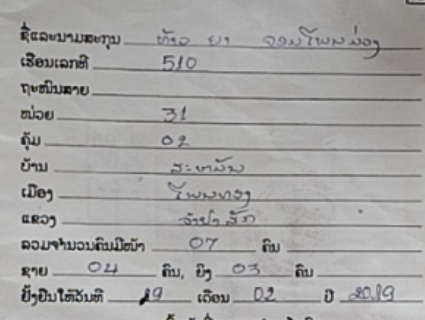 ຊື່ແລະນາມສະກຸນ ທ້າວ ຍາ
ເຮືອນເລກທີ 510
ຖະໜົນສາຍ
ໜ່ວຍ 31
ຄຸ້ມ 02
ບ້ານ
ເມືອງ ໂພນທອງ
ແຂວງ ຈຳປາສັກ
ລວມຈຳນວນຄົນມີໜ້າ 07 ຄົນ
ຊາຍ 04 ຄົນ, ຍິງ 03 ຄົນ
ຢັ້ງຢືນໃຫ້ວັນທີ 19 ເດືອນ 02 ປີ 2019